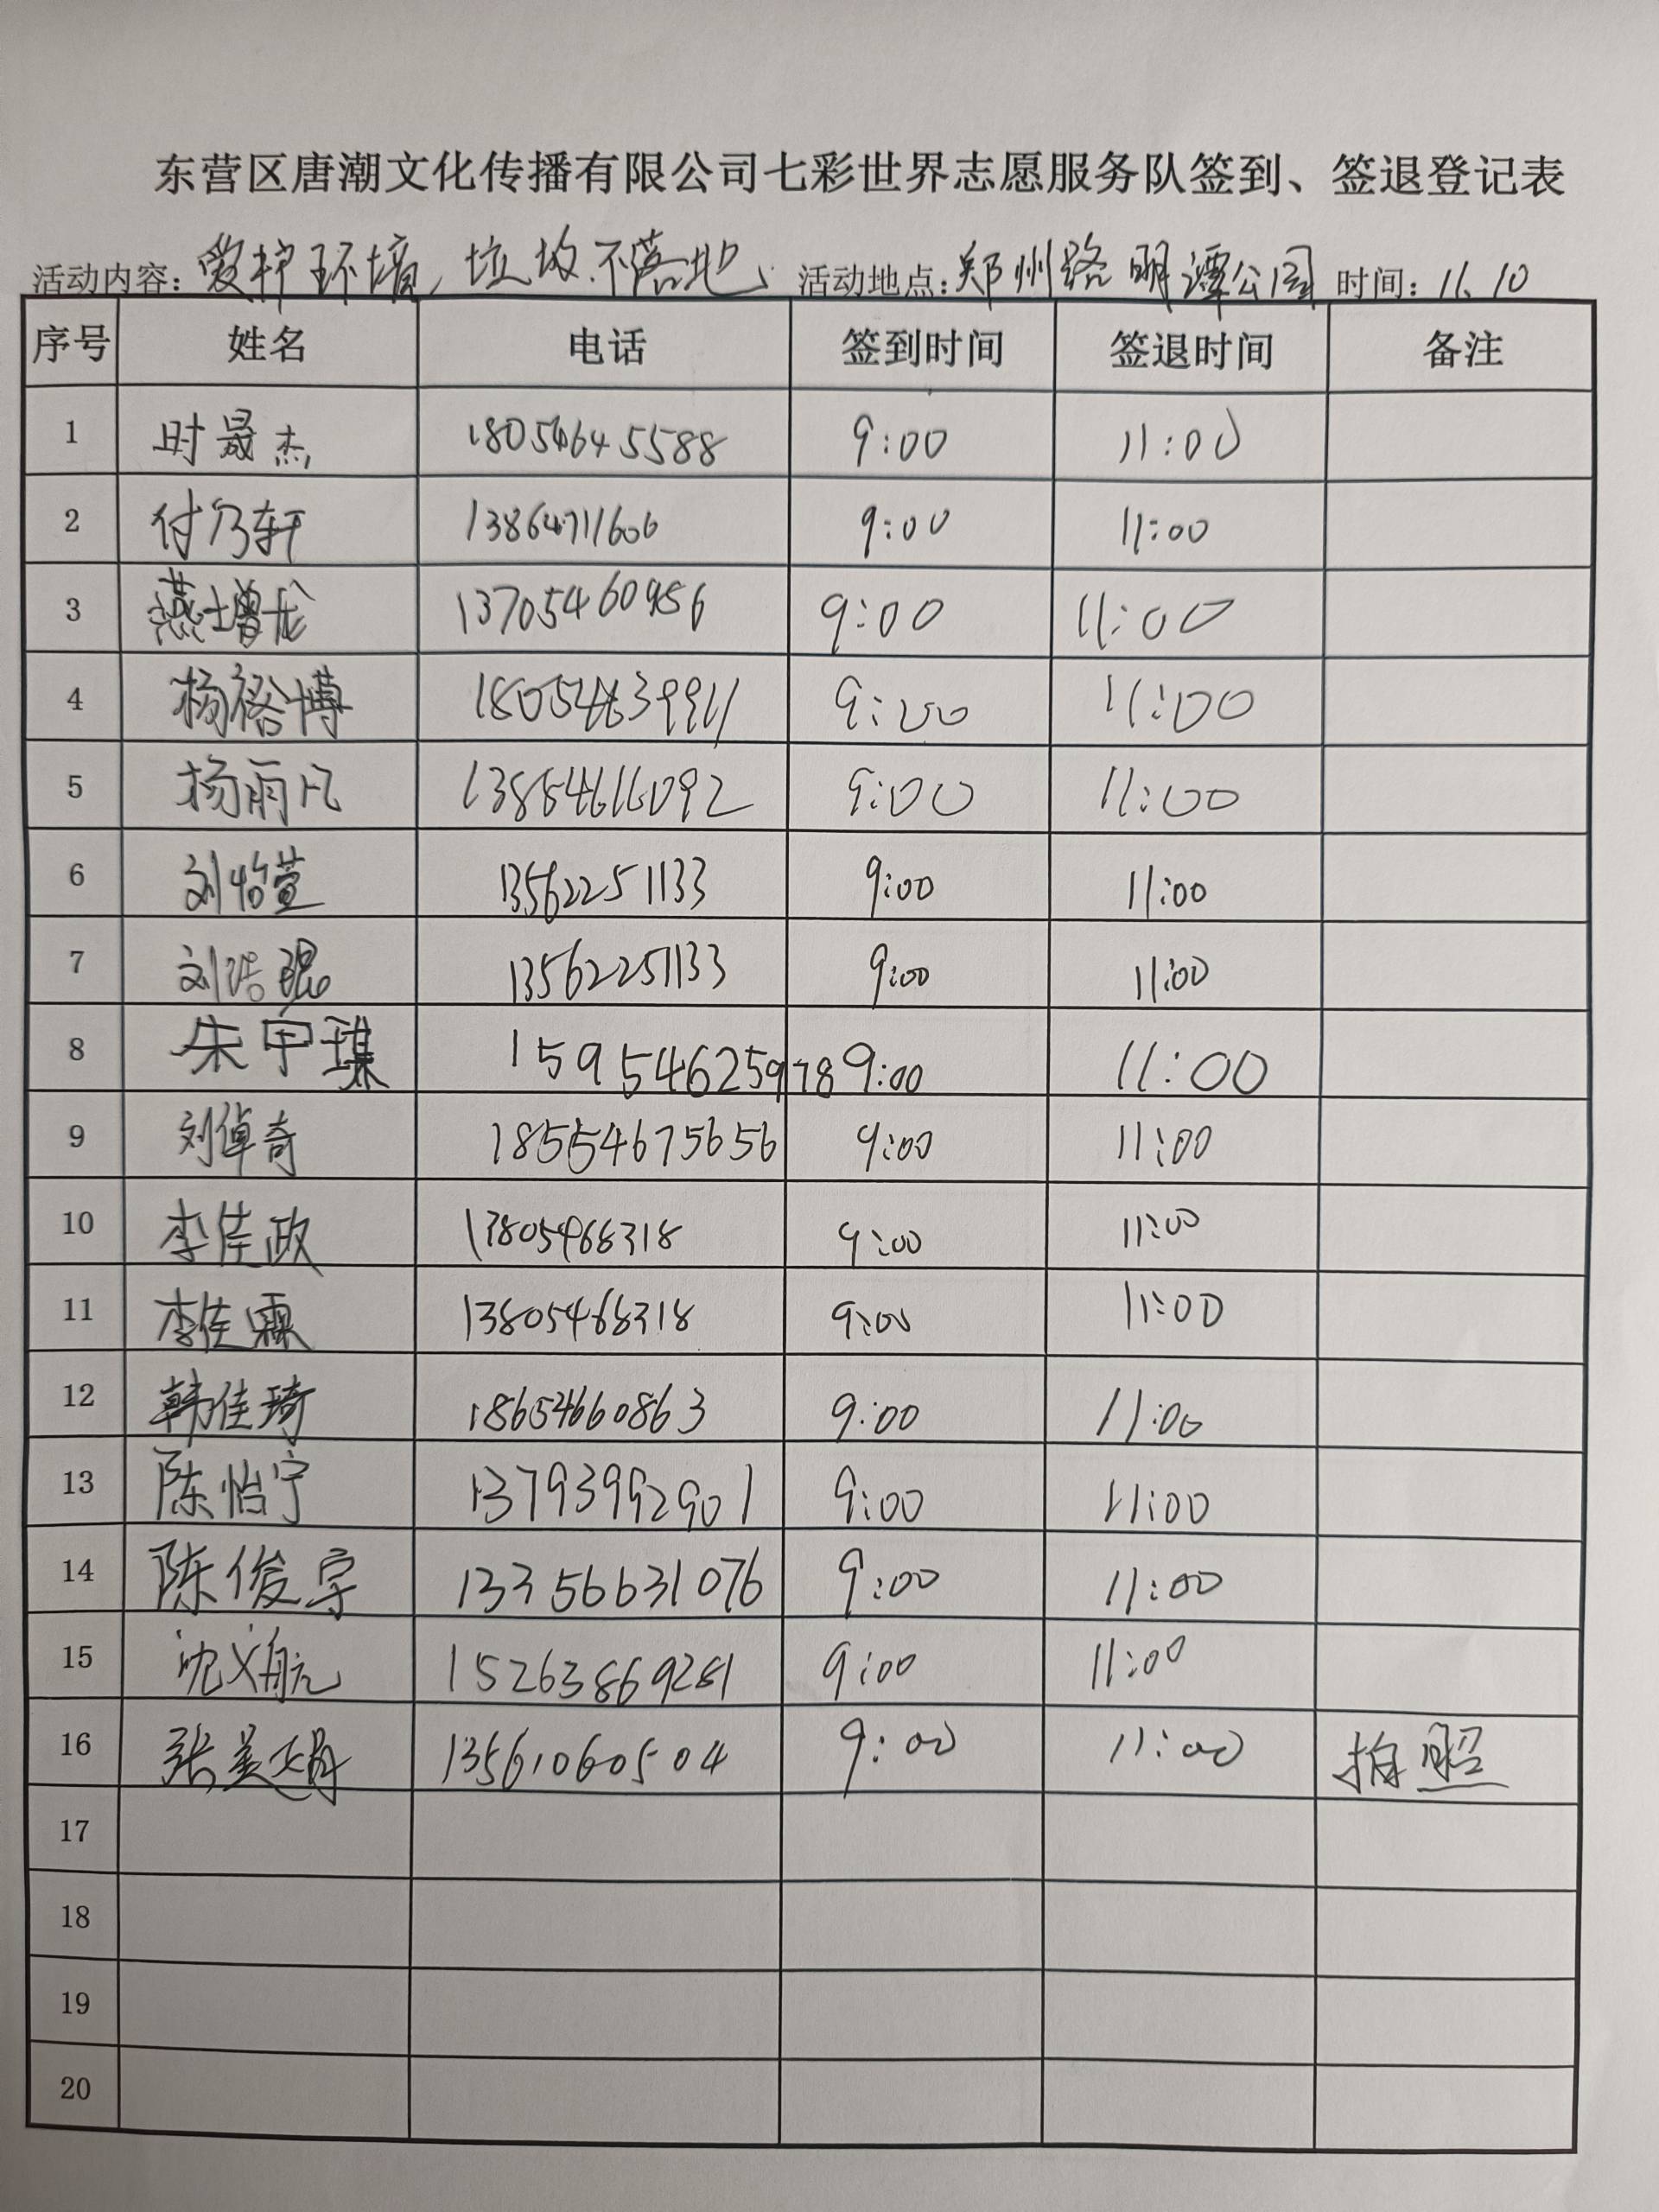 东营区唐潮文化传播有限公司七彩世界志愿服务队签到、签退登记表
活动内容：爱护环境，垃圾不落地、 活动地点：郑州路明潭公园 时间：11、10
序号 姓名 电话 签到时间 签退时间 备注
1 时晟杰 18054645588 9:00 11:00
2 付乃轩 13864711606 9:00 11:00
3 燕增龙 13705460956 9:00 11:00
4 杨裕博 18054639911 9:00 11:00
5 杨雨凡 13854616092 9:00 11:00
6 刘怡萱 13562251133 9:00 11:00
7 刘浩琨 13562251133 9:00 11:00
8 朱甲瑾 15954625978 9:00 11:00
9 刘倬奇 18554675656 9:00 11:00
10 李佳政 13805468318 9:00 11:00
11 李佳霖 13805468318 9:00 11:00
12 韩佳琦 18654660863 9:00 11:00
13 陈怡宁 13793992901 9:00 11:00
14 陈俊宇 13356631076 9:00 11:00
15 沈义航 15263869281 9:00 11:00
16 张美娟 13561060504 9:00 11:00 拍照
17
18
19
20